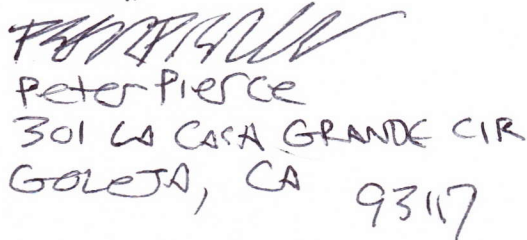 Peter Pierce
301 LA CASA GRANDE CIR
GOLETA, CA 93117